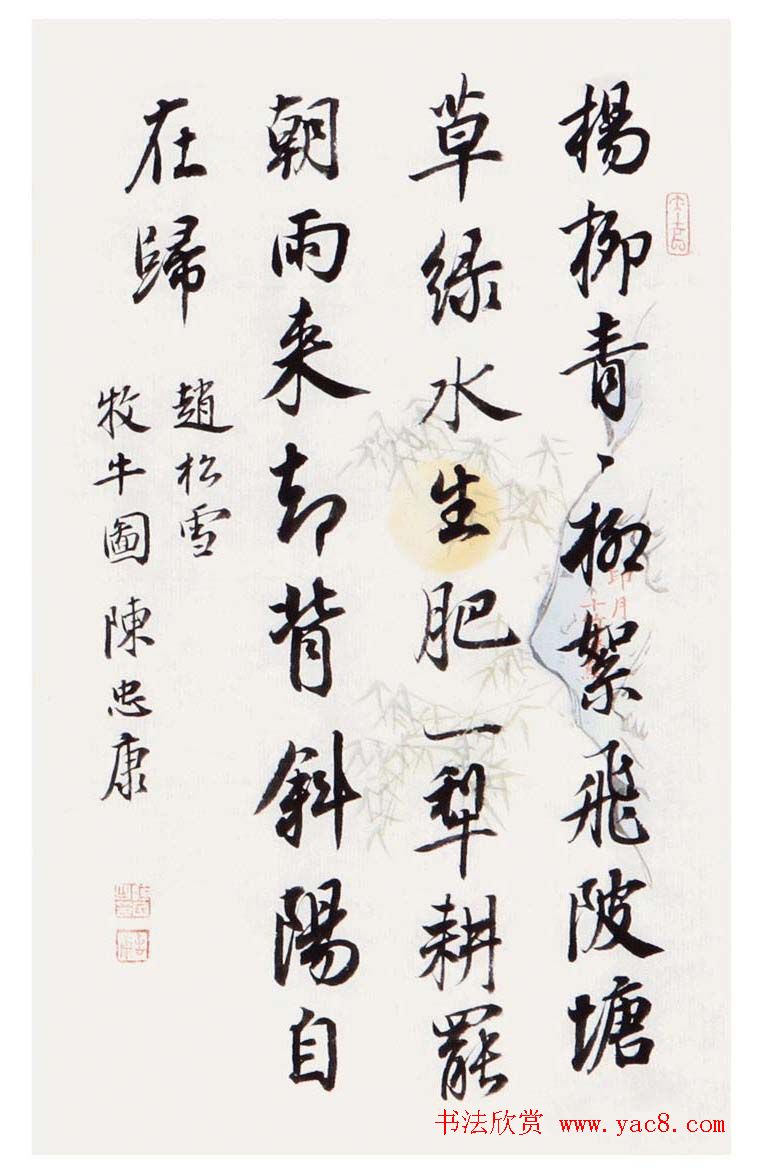 楊柳青丶柳絮飛陂塘
草緑水生肥一犁耕罷
朝雨来却背斜陽自
在歸
趙松雪
牧牛圖 陳忠康
印月
书法欣赏 www.yac8.com